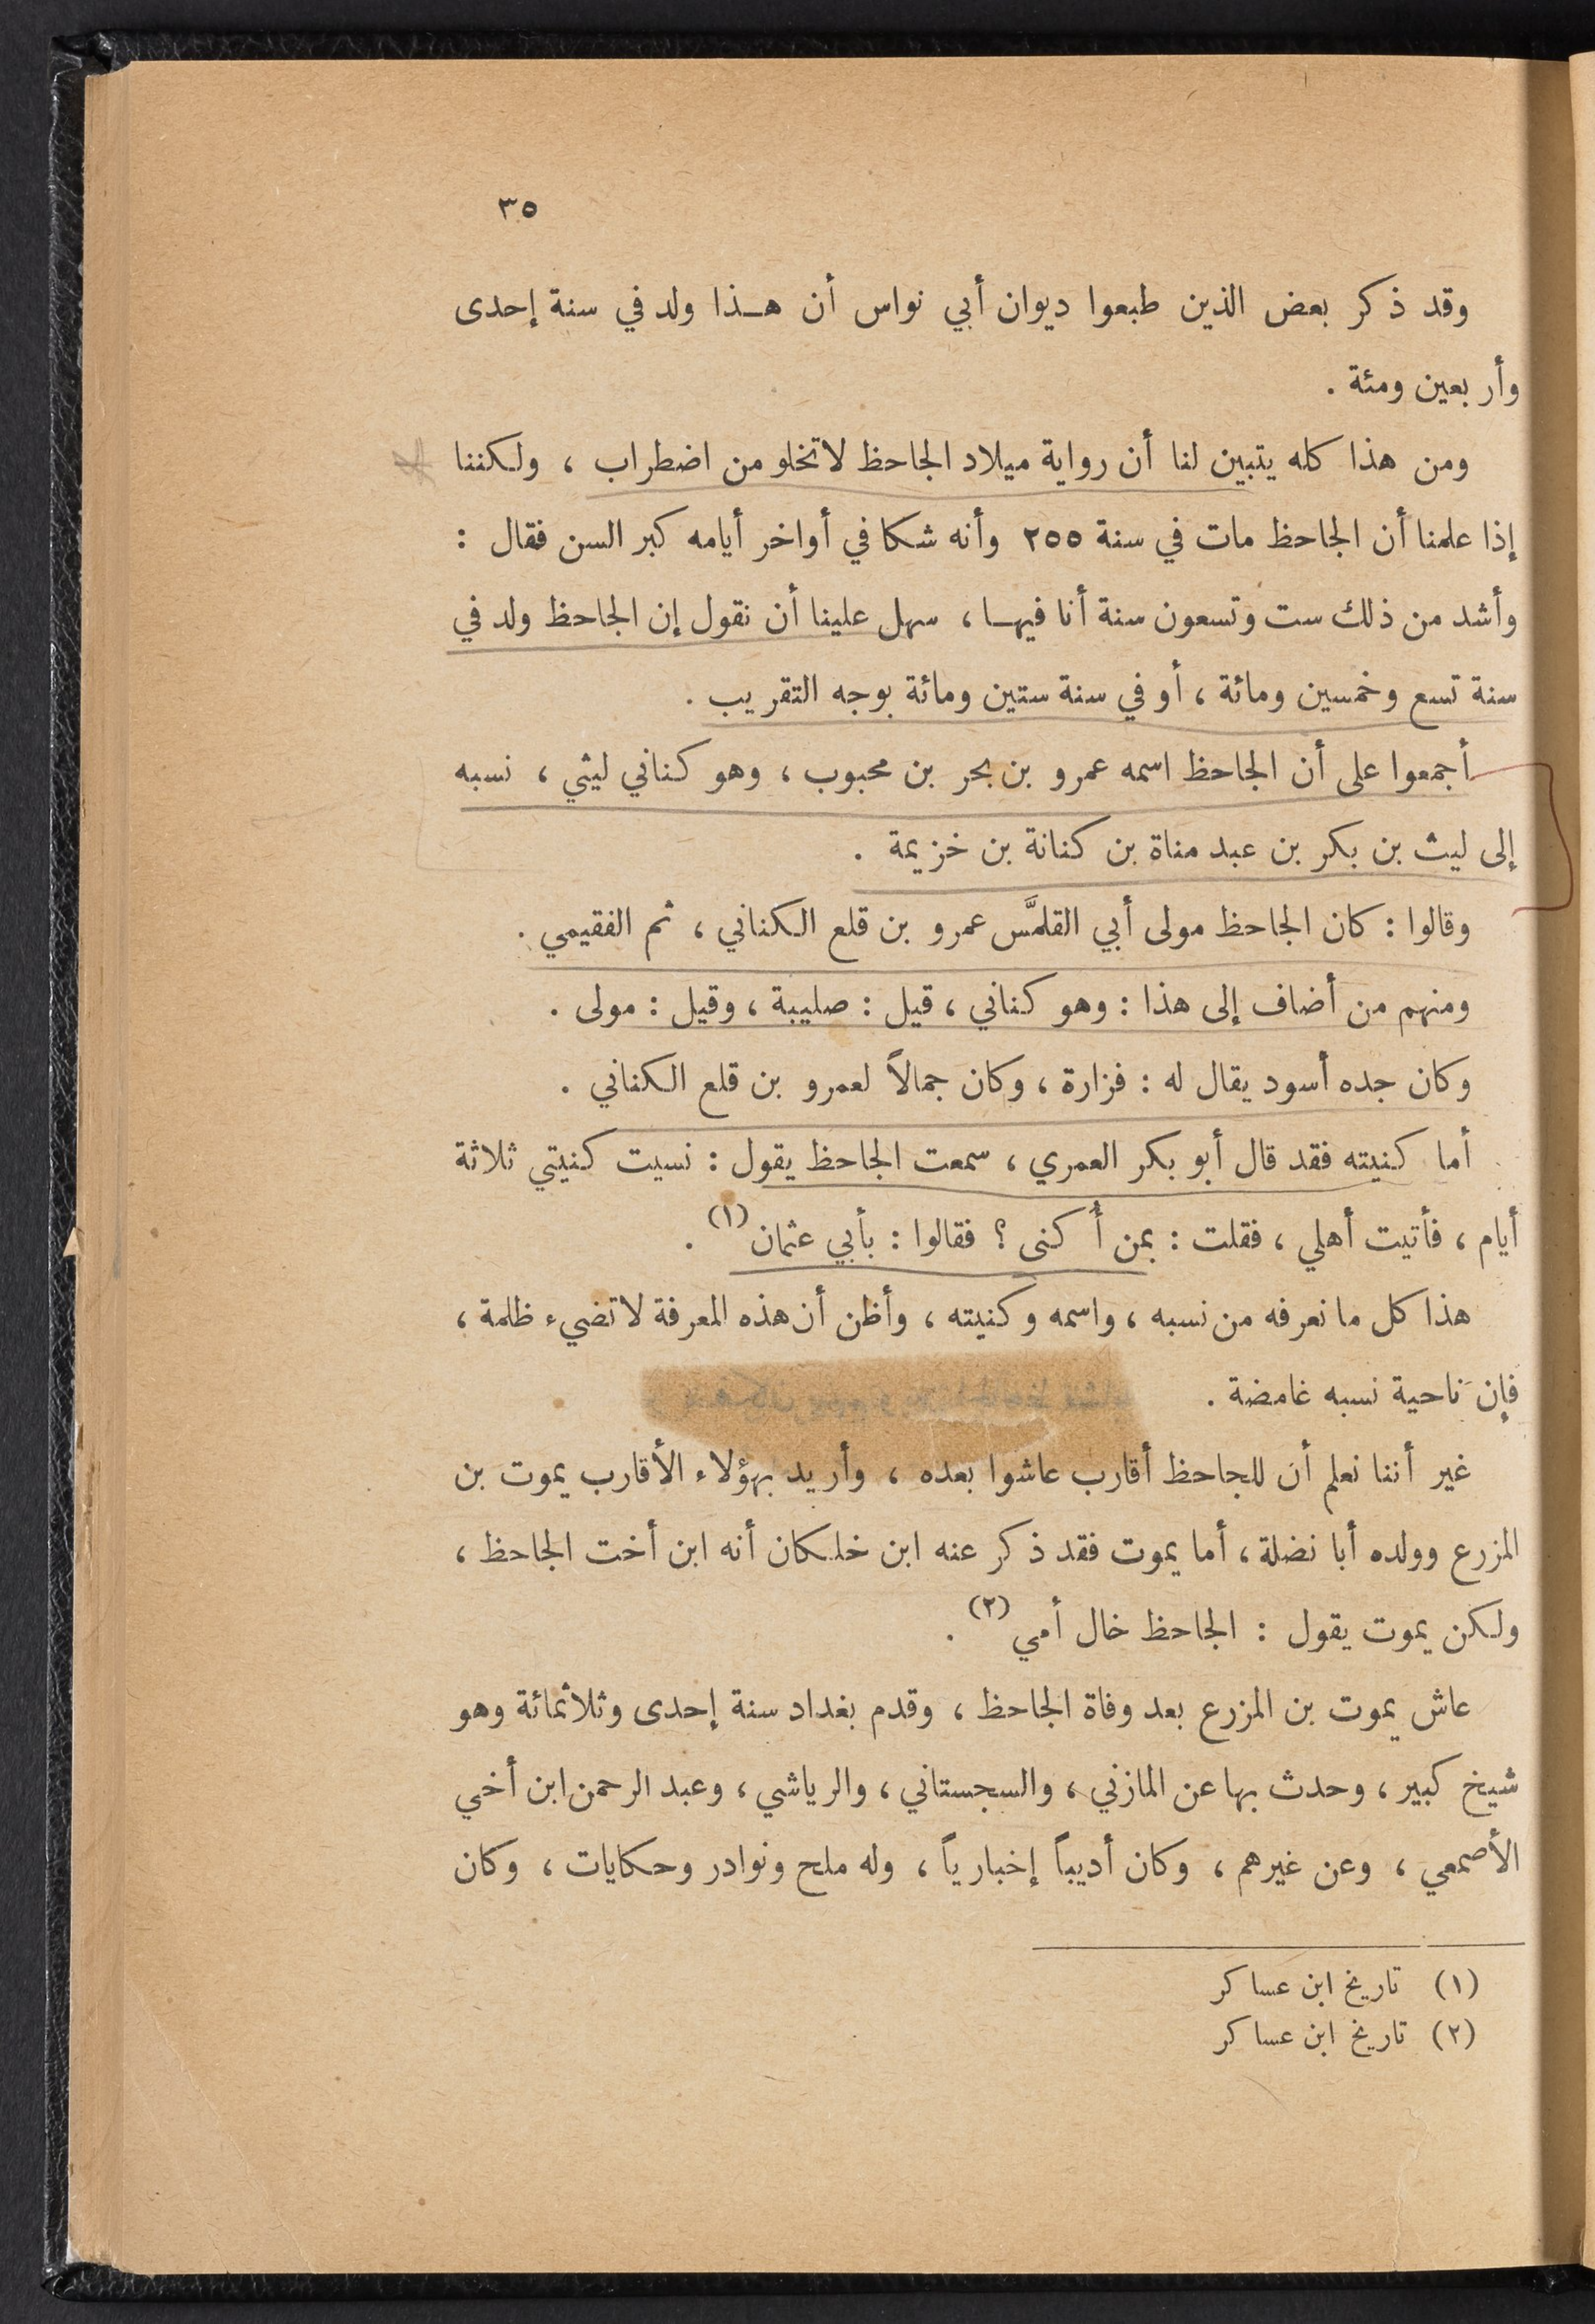 ٣٥
وقد ذكر بعض الذين طبعوا ديوان أبي نواس أن هـذا ولد في سنة إحدى
وأربعين ومئة .
ومن هذا كله يتبين لنا أن رواية ميلاد الجاحظ لاتخلو من اضطراب ، ولكننا
إذا علمنا أن الجاحظ مات في سنة ٢٥٥ وأنه شكا في أواخر أيامه كبر السن فقال :
وأشد من ذلك ست وتسعون سنة أنا فيهـا ، سهل علينا أن نقول إن الجاحظ ولد في
سنة تسع وخمسين ومائة ، أو في سنة ستين ومائة بوجه التقريب .
أجمعوا على أن الجاحظ اسمه عمرو بن بحر بن محبوب ، وهو كناني ليثي ، نسبه
إلى ليث بن بكر بن عبد مناة بن كنانة بن خزيمة .
وقالوا : كان الجاحظ مولى أبي القلمَّس عمرو بن قلع الكناني ، ثم الفقيمي .
ومنهم من أضاف إلى هذا : وهو كناني ، قيل : صليبة ، وقيل : مولى .
وكان جده أسود يقال له : فزارة ، وكان جمالاً لعمرو بن قلع الكناني .
أما كنيته فقد قال أبو بكر العمري ، سمعت الجاحظ يقول : نسيت كنيتي ثلاثة
أيام ، فأتيت أهلي ، فقلت : بمن أُكنى ؟ فقالوا : بأبي عثمان (١) .
هذا كل ما نعرفه من نسبه ، واسمه وكنيته ، وأظن أن هذه المعرفة لاتضيء ظلمة ،
فإن ناحية نسبه غامضة .
غير أننا نعلم أن للجاحظ أقارب عاشوا بعده ، وأريد بهؤلاء الأقارب يموت بن
المزرع وولده أبا نضلة ، أما يموت فقد ذكر عنه ابن خلكان أنه ابن أخت الجاحظ ،
ولكن يموت يقول : الجاحظ خال أمي (٢) .
عاش يموت بن المزرع بعد وفاة الجاحظ ، وقدم بغداد سنة إحدى وثلاثمائة وهو
شيخ كبير ، وحدث بها عن المازني ، والسجستاني ، والرياشي ، وعبد الرحمن ابن أخي
الأصمعي ، وعن غيرهم ، وكان أديباً إخبارياً ، وله ملح ونوادر وحكايات ، وكان
(١) تاريخ ابن عساكر
(٢) تاريخ ابن عساكر